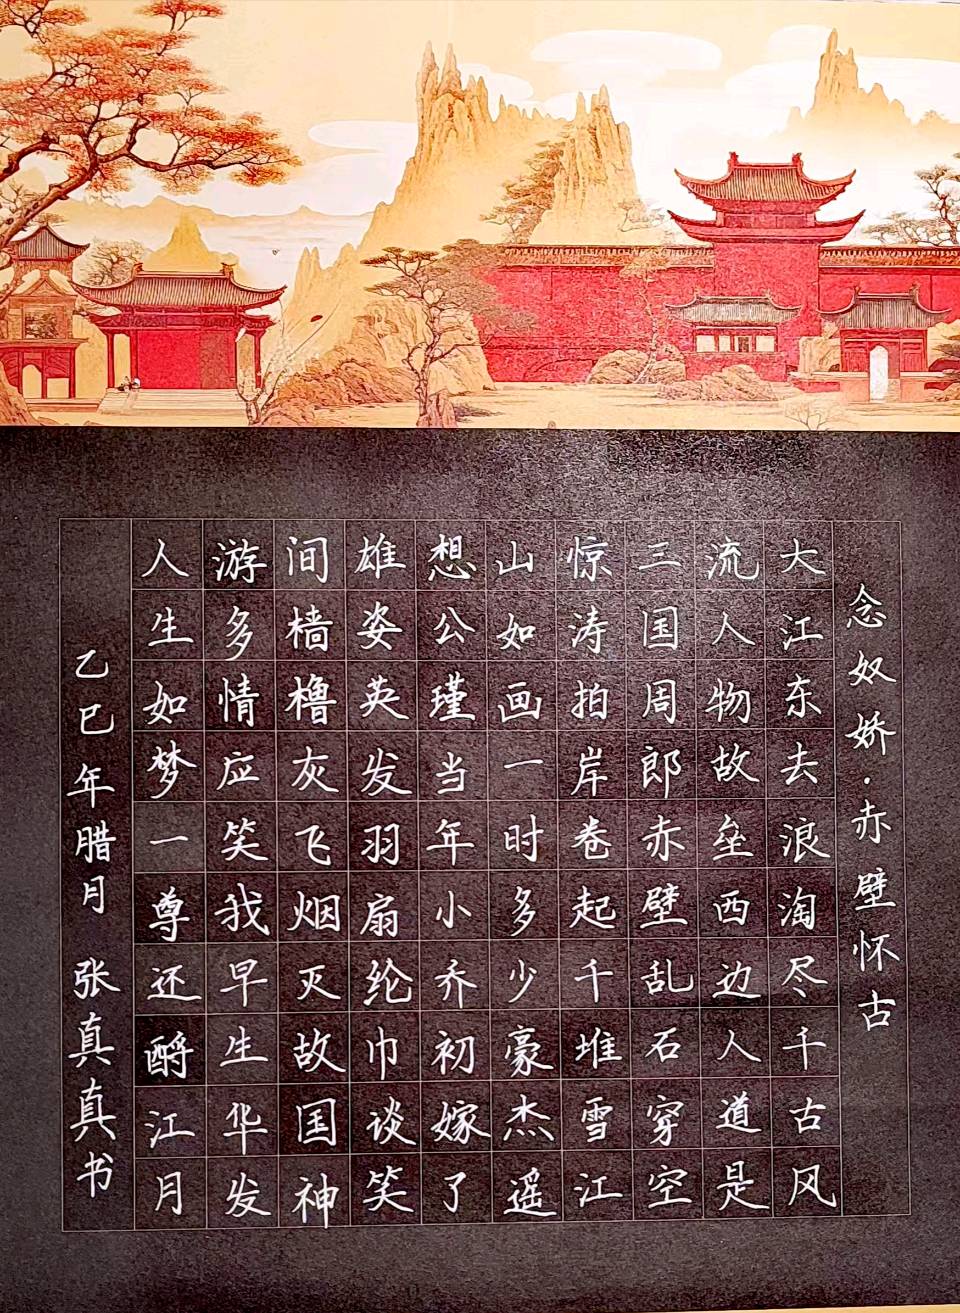 念奴娇·赤壁怀古
大江东去浪淘尽千古风
流人物故垒西边人道是
三国周郎赤壁乱石穿空
惊涛拍岸卷起千堆雪江
山如画一时多少豪杰遥
想公瑾当年小乔初嫁了
雄姿英发羽扇纶巾谈笑
间樯橹灰飞烟灭故国神
游多情应笑我早生华发
人生如梦一尊还酹江月
乙巳年腊月 张真真书